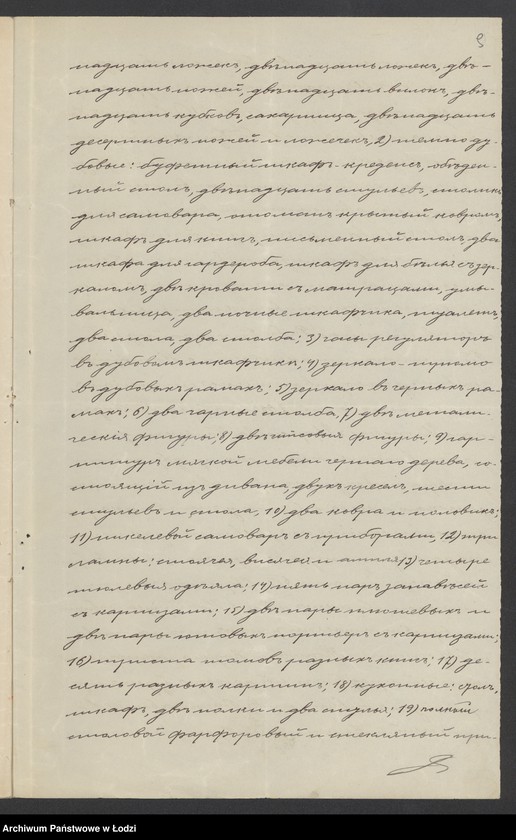 надцать ложекъ, двѣнадцать ложекъ, двѣ-
надцать ножей, двѣнадцать вилокъ, двѣ-
надцать кубковъ, сахарница, двѣнадцать
десертныхъ ножей и ложечекъ, 2) темно ду-
бовые: буфетный шкафъ-креденсъ, обѣден-
ный столъ, двѣнадцать стульевъ, столикъ
для самовара, отоманъ крытый ковромъ,
шкафъ для книгъ, письменный столъ, два
шкафа для гардероба, шкафъ для бѣлья съ зер-
каломъ, двѣ кровати съ матрацами, умы-
вальница, два ночные шкафчика, туалетъ,
два стола, два столба; 3) часы регуляторъ
въ дубовомъ шкафчикѣ; 4) зеркало-трюмо
въ дубовыхъ рамахъ; 5) зеркало въ черныхъ ра-
махъ; 6) два чарные столба, 7) двѣ метали-
ческія фигуры; 8) двѣ гипсовыя фигуры; 9) гар-
нитуръ мягкой мебели чернаго дерева, со-
стоящій изъ дивана, двухъ креселъ, шести
стульевъ и стола, 10) два ковра и половикъ;
11) никелевой самоваръ съ приборами, 12) три
лампы: стоячея, висячея и 13) четыре
тюлевыя одѣяла; 14) пять паръ занавѣсей
съ карнизами; 15) двѣ пары плюшевыхъ и
двѣ пары ютовыхъ портьеръ съ карнизами;
16) триста томовъ разныхъ книгъ; 17) де-
сять разныхъ картинъ; 18) кухонные: столъ,
шкафъ, двѣ полки и два стулья; 19) полный
столовой фарфоровый и стекляный при-
Archiwum Państwowe w Łodzi